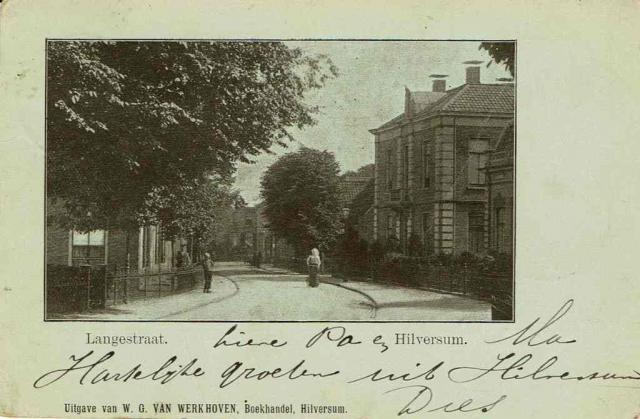 Langestraat. Lieve Pa en Hilversum. Ma
Hartelijke groeten uit Hilversum
Dies
Uitgave van W. G. VAN WERKHOVEN, Boekhandel, Hilversum.